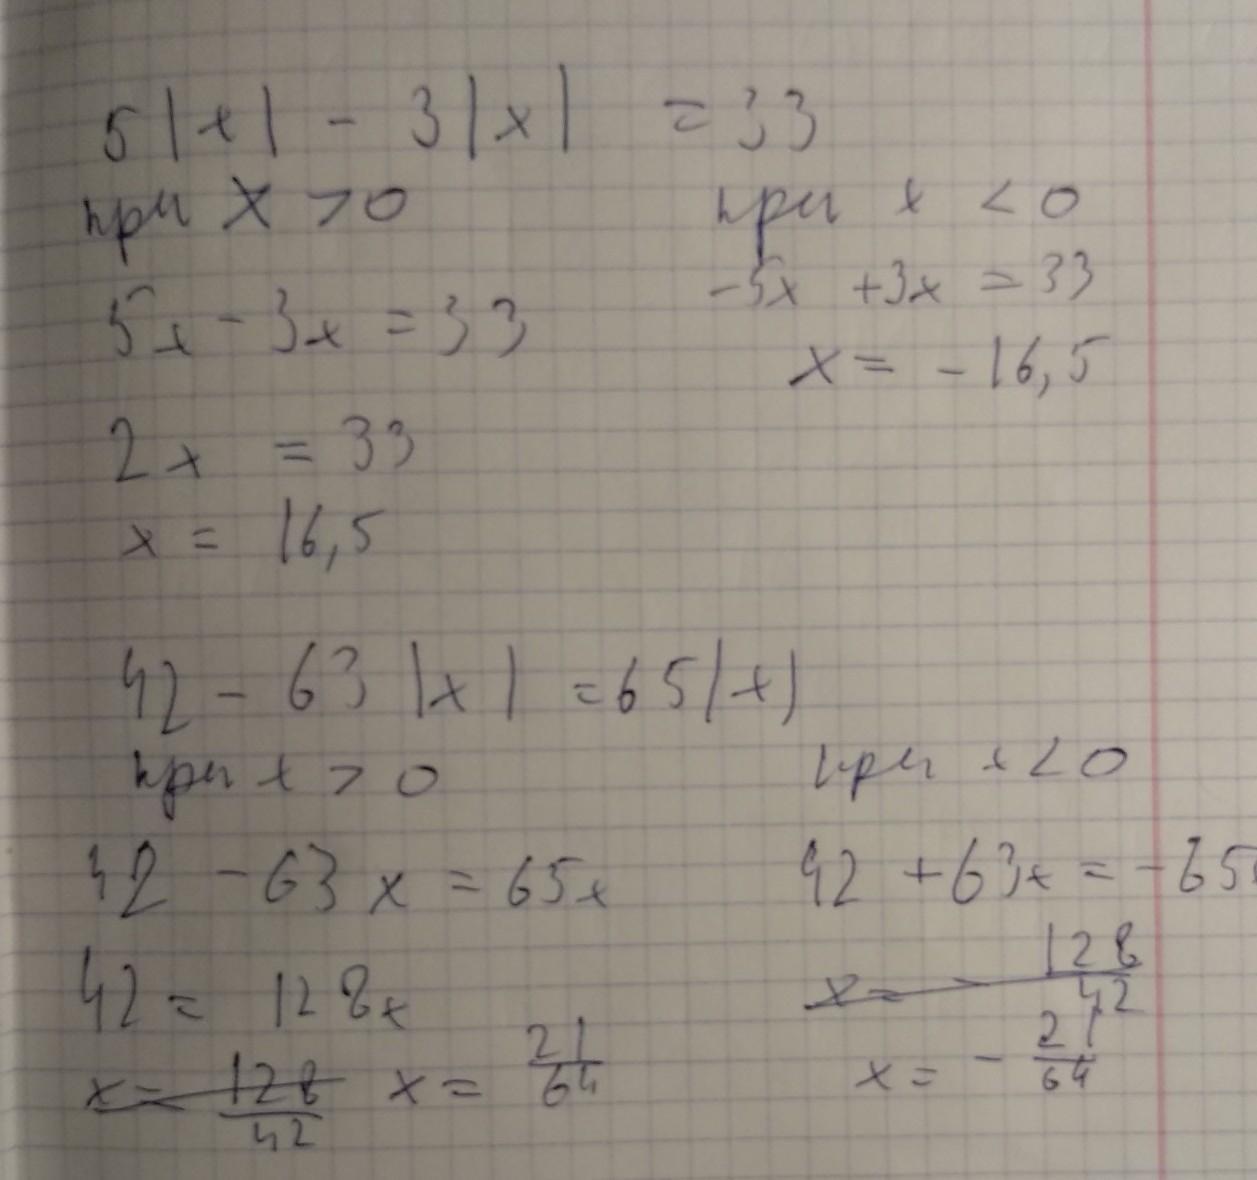 5|x| - 3|x| = 33
при x > 0 при x < 0
5x - 3x = 33 -5x + 3x = 33
2x = 33 x = -16,5
x = 16,5
42 - 63|x| = 65|x|
при x > 0 при x < 0
42 - 63x = 65x 42 + 63x = -65x
42 = 128x x = - 128/42
x = 128/42 x = 21/64 x = - 21/64